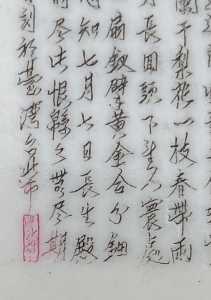 闌干梨花一枝春帶雨
月長回頭下望人寰處
扇釵擘黃金合分鈿
知七月七日長生殿
時尽此恨綿々無尽期
刻於臺灣台北市